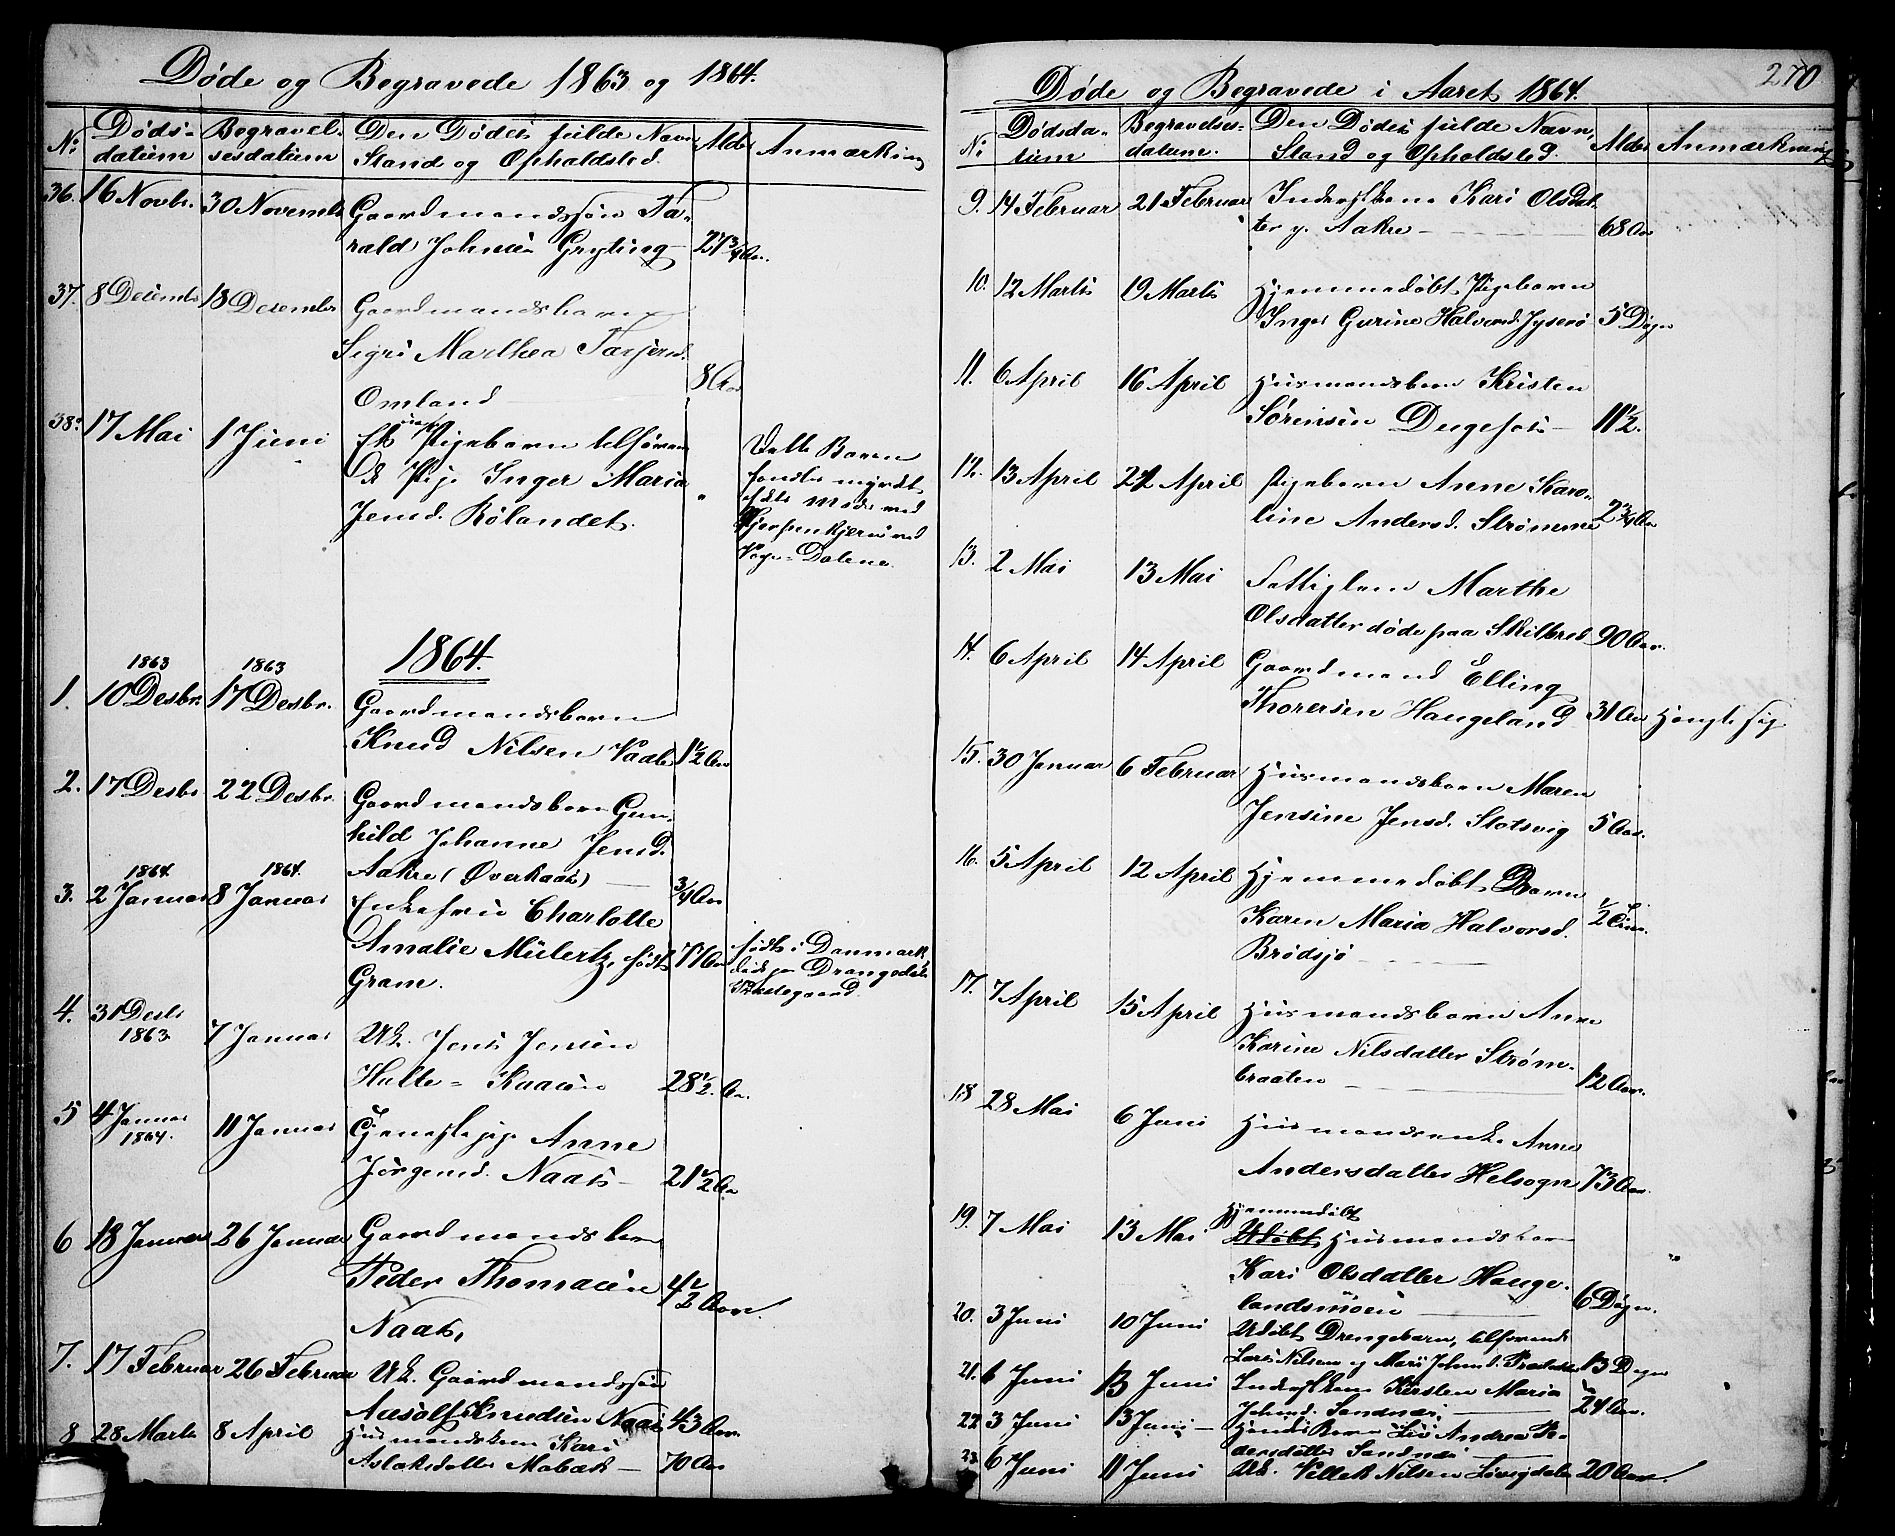 Døde og Begravede 1863 og 1864.
No
Døds-
datum
Begravel-
sesdatum
Den Dødes fulde Navn
Stand og Opholdsted.
Alder
Anmærkning
36. 16 Novbr. 30 Novembr Gaardmandssøn Ta-
rald Johnsen Gryting 27 3/4 Aar.
37. 8 Desembr 18 Desember Gaardmandsbarn
Sigri Marthea Tarjersd.
Omland 8 Aar
38. 17 Mai 1 Juni Et Pigebarn tilhøren
de Pige Inger Maria
Jensd. Rølandet.
Dette Barn
myrdet
Moder ved
Dalene.
1864.
1863 1863
1. 10 Desbr. 17 Desbr. Gaardmandsbarn
Knud Nilsen Vaale 1 1/2 Aar
2. 17 Desbr 22 Desbr. Gaardmandsbarn Gun-
hild Johanne Jensd.
Aakre (Overkaas) 3/4 Aar
1864. 1864.
3. 2 Januar 8 Januar Enkefru Charlotte
Amalie Mülertz, født
Gram. 77 Aar
født i Danmark
Drangedals
Præstegaard.
4. 31 Desbr
1863. 7 Januar Uk. Jens Jensen
Hulte- Kaasen 28 1/2 Aar.
5 4 Januar
1864. 11 Januar Tjenestepige Anne
Jørgensd. Naas 21 1/2 Aar
6 18 Januar 26 Januar Gaardmandsbarn
Peder Thomasen
Naas, 4 1/2 Aar.
7. 17 Februar 26 Februar Uk. Gaardmandssøn
Aasolf Knudsen Naas 43 Aar.
8 28 Marts 8 April Husmandskone Kari
Aslaksdatter Mobæk 70 Aar
Døde og Begravede i Aaret 1864.
270
No
Dødsda-
tum
Begravelses-
datum.
Den Dødes fulde Navn,
Stand og Opholdsted.
Alder
Anmærkning
9. 14 Februar 21 Februar Inderstkone Kari Olsdat-
ter p. Aakre 68 Aar
10. 12 Marts 19 Marts Hjemmedøbt Pigebarn
Inger Gurine Halvorsd. 5 Døgn
11. 6 April 16 April Husmandsbarn Kristen
Sørensen 11 1/2.
12. 13 April 22 April Pigebarn Anne Karo-
line Andersd. Strømme 2 3/4 Aar
13. 2 Mai 13 Mai Fattiglem Marthe
Olsdatter døde paa Skilbred 90 Aar.
14. 6 April 14 April Gaardmand Elling
Thorersen Haugeland 31 Aar Hængte sig
15. 30 Januar 6 Februar Husmandsbarn Maren
Jensine Jensd. Slotsvig 5 Aar.
16. 5 April 12 April Hjemmedøbt Barn
Karen Maria Halvorsd.
Brødsjø 1/2
17. 7 April 15 April Husmandsbarn Anne
Karine Nilsdatter Strøm-
braaten 12 Aar.
18 28 Mai 6 Juni Husmandsenke Anne
Andersdatter Helsogn 73 Aar.
Hjemmedøbt
19. 7 Mai 13 Mai Udøbt Husmandsbarn
Kari Olsdatter Hauge-
landsmoen 6 Døgn.
20. 3 Juni 10 Juni Udøbt Drengebarn, tilhørende
Lars Nilsen og Mari Johnsd. 13 Døgn
21. 1 Juni 13 Juni Inderstkone Kirsten Maria
Johnsd. Sandnæs 24 Aar.
22. 3 Juni 13 Juni Hendes Barn Andrea Pe-
dersdatter Sandnæs
23. 6 Juni 11 Juni Uk. Vetlek Nilsen 20 Aar.